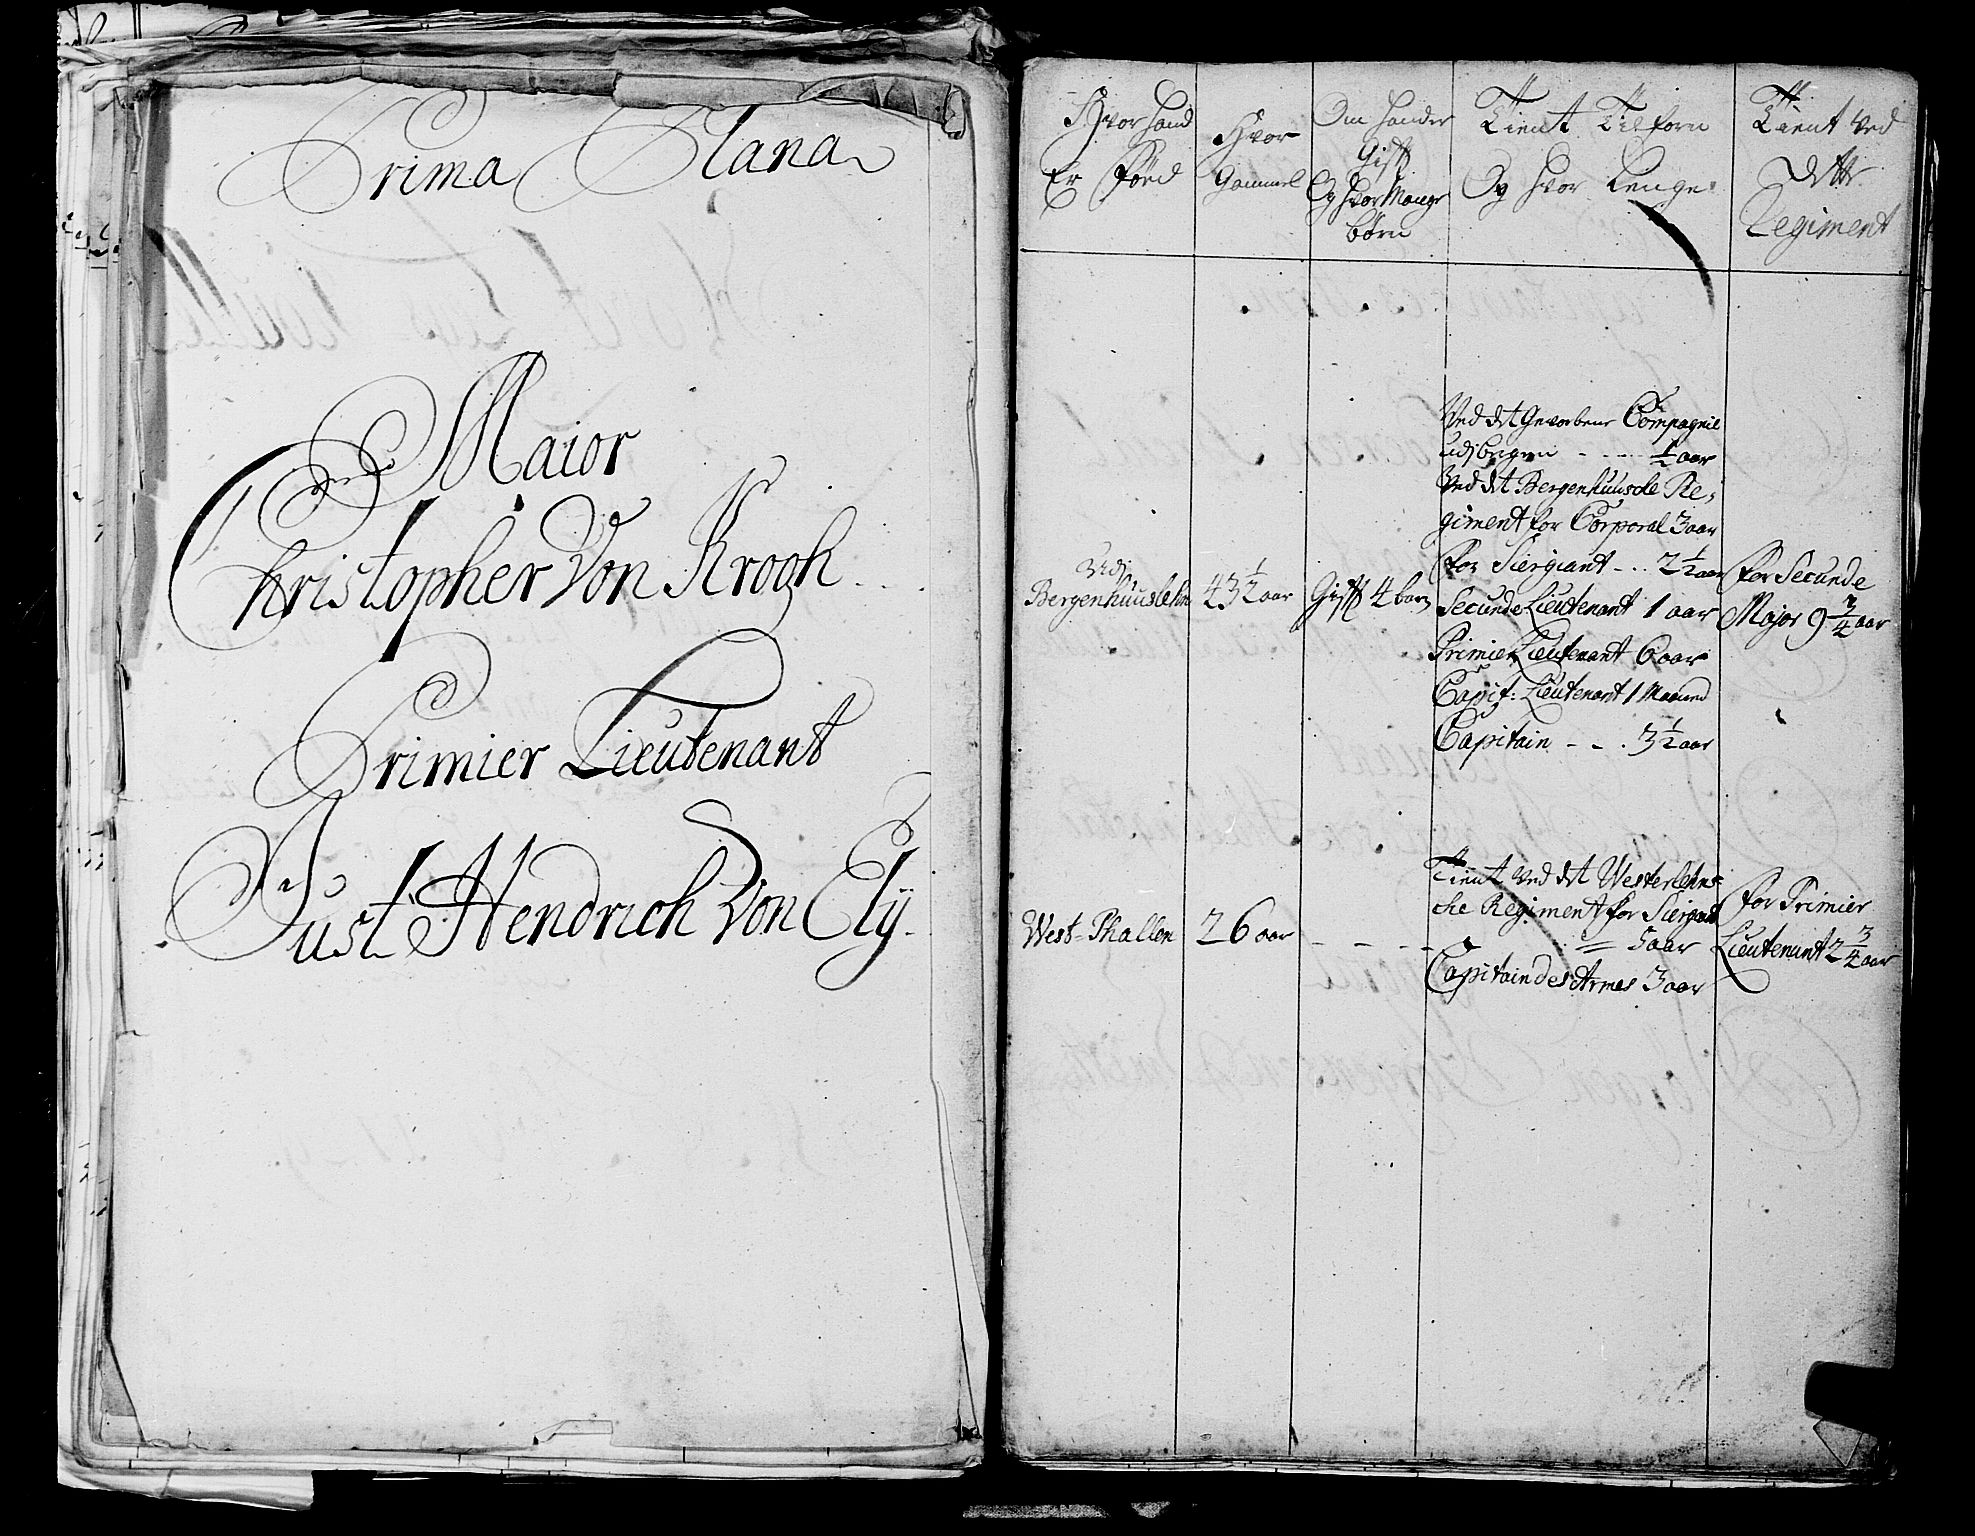 Prima Plana
Maior
Christopher Von Krogh
Primier Lieutenant
Just Hendrich Von Ely
Hvor hand
Er Föed
Hvor
Gammel
Om hand er
Gifft
Og hvor Mange
börn
Tient Tilforn
Og hvor Lenge
Tient ved
dette
Regiment
Udj
Bergenhuuslehn
43 1/2 aar
Gifft 4 børn
Ved det Gevorbene Compagnie
udj Bergen - - - 1/2 aar
Ved det Bergenhuusche Re-
giment for Corporal 3 aar
for Siergiant - . . 2 1/2 aar
Secunde Lieutenant 1 aar
Primier Lieutenant 6 aar
Capit: Lieutenant 1 Maaned
Capitain - - . 3 1/2 aar
for Secunde
Major 9 3/4 aar
West-Phallen
26 aar
- - - -
Tient ved det Westerlehns-
che Regiment for Siergiant
5 aar
Capitain des Armes 3 aar
for Primier
Lieutenant 2 3/4 aar